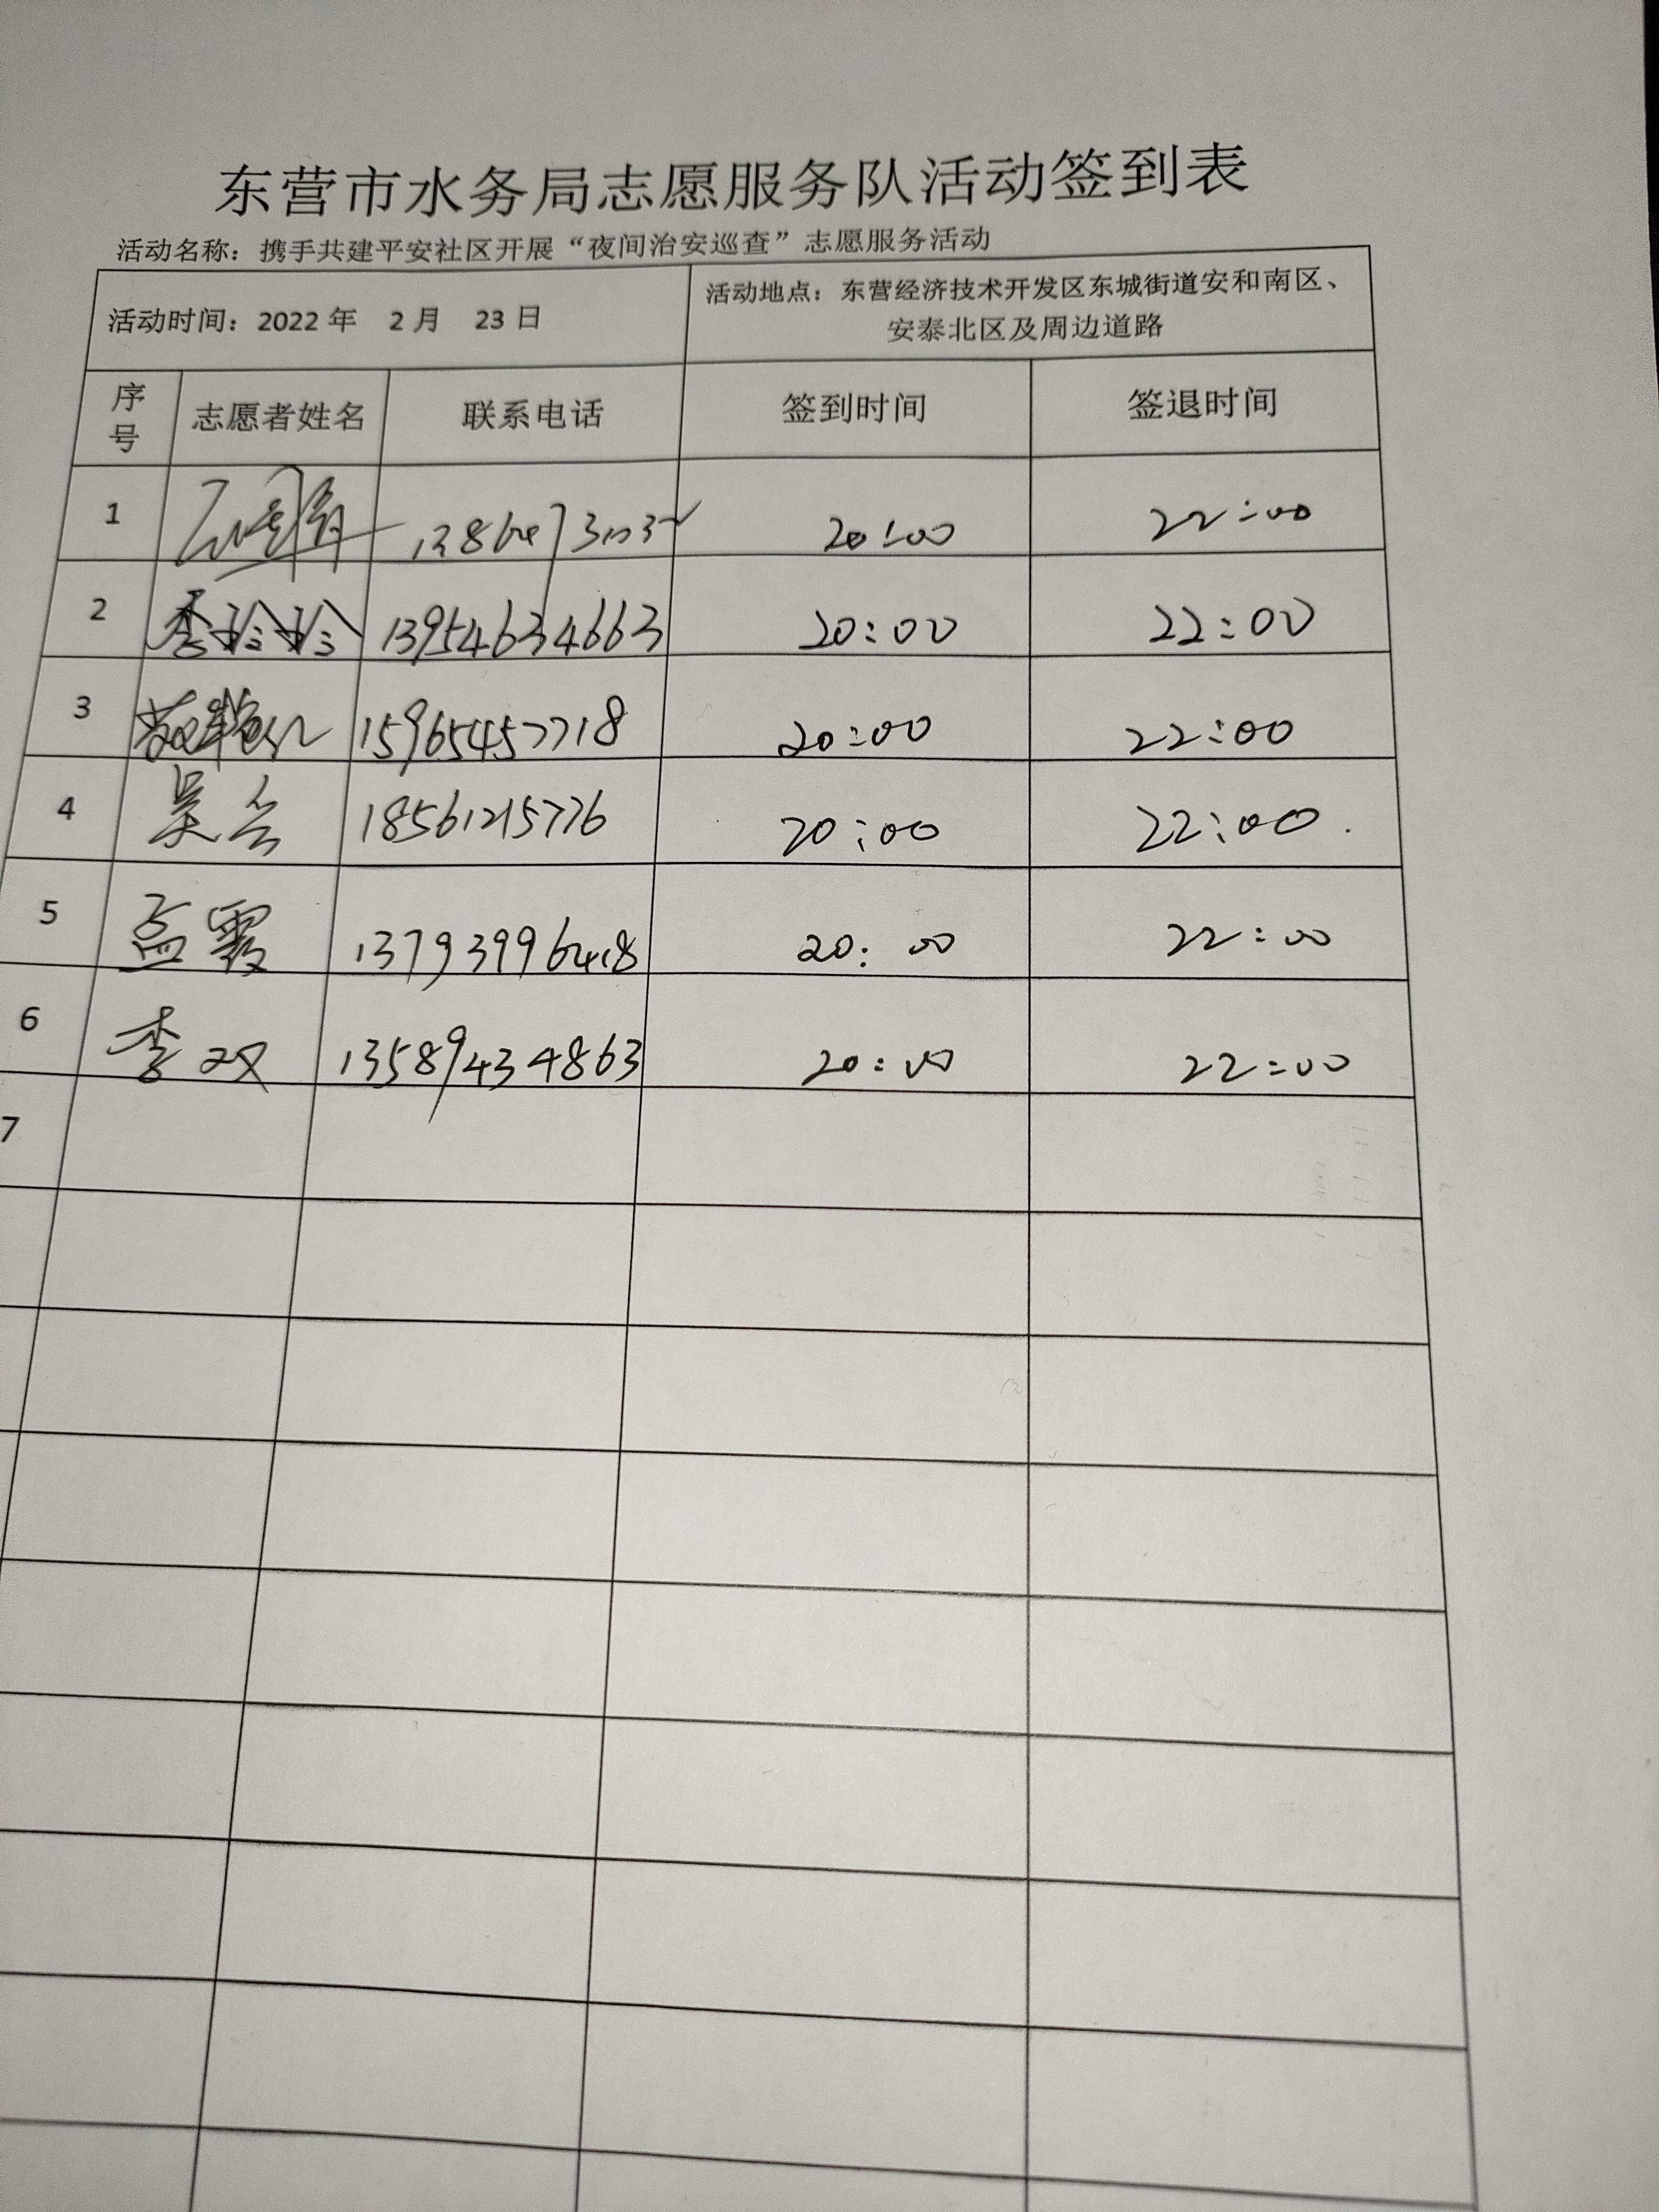 东营市水务局志愿服务队活动签到表
活动名称：携手共建平安社区开展“夜间治安巡查”志愿服务活动
活动时间：2022 年 2 月 23 日
活动地点：东营经济技术开发区东城街道安和南区、
安泰北区及周边道路
序号 志愿者姓名 联系电话 签到时间 签退时间
1 20:00 22:00
2 李珍珍 13954634663 20:00 22:00
3 15965457718 20:00 22:00
4 吴云 18561215776 20:00 22:00
5 孟霞 13793996418 20:00 22:00
6 李双 13589434863 20:00 22:00
7